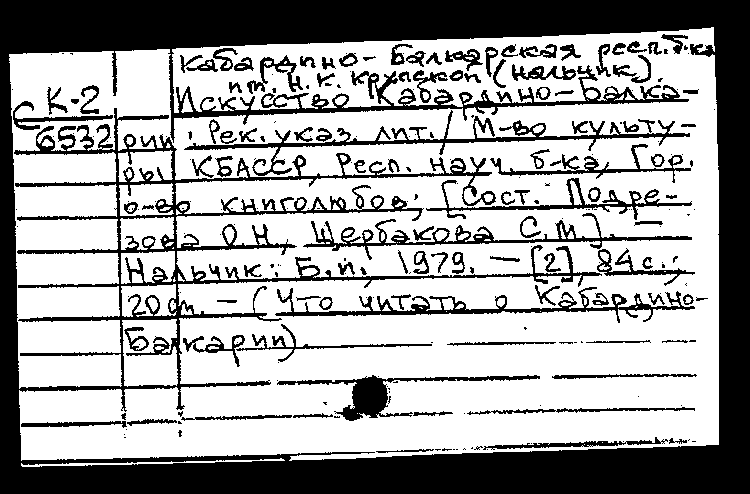 Кабардино-Балкарская респ. б-ка
им. Н. К. Крупской (Нальчик).
К-2 Искусство Кабардино-Балка-
С 6532 рии : Рек. указ. лит. / М-во культу-
ры КБАССР, Респ. науч. б-ка, Гор.
о-во книголюбов; [Сост. Подре-
зова О.Н., Щербакова С.М.]. —
Нальчик : Б.и., 1979. — [2], 84 с.;
20 см. — (Что читать о Кабардино-
Балкарии).